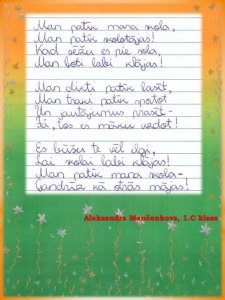 Man patīk mana skola,
Man patīk skolotājas!
Kad sēžu es pie sola,
Man ļoti labi klājas!
Man dikti patīk lasīt,
Man traki patīk
Un jautājumus prasīt –
Jā, tos es māku uzdot!
Es būšu te vēl ilgi,
Lai skolai labi klājas!
Man patīk mana skola –
Gandrīz kā otrās mājas!
Aleksandra Mančenkova, 1.C klase